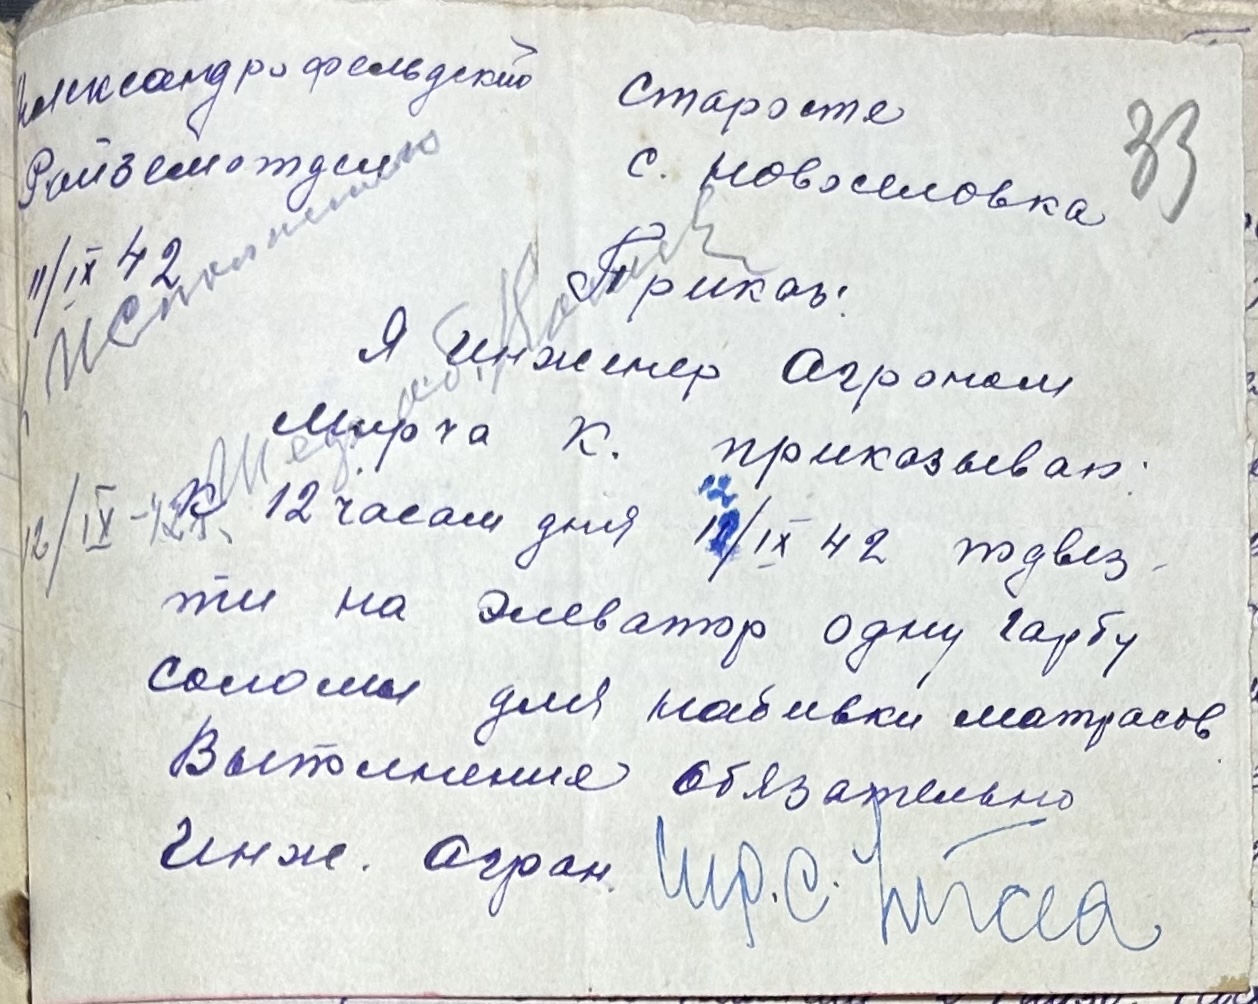 Александрофельдский
Райземотдел
11/IX 42
Старосте
с. Новоселовка
33
Приказ:
Я Инженер Агроном
Мирча К. приказываю:
К 12 часам дня 12/IX 42 подвез-
ти на элеватор одну гарбу
соломы для набивки матрасов
Выполнение обязательно
Инж. Агрон.
Исполнению
12/IX-42г.